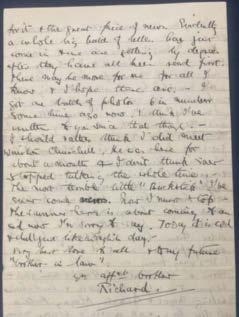 for it & the great piece of news. Evidently
a whole big batch of letters has just
come in & we are getting by degrees
after they have all been sent first.
There may be more for me for all I
know & I hope there are. — I
got one batch of photos 6 in number
some time ago now. I think I've
written to you since that though.
I should rather think I did meet
Winston Churchill. He was here for
about a month & I don't think I ever
stopped talking the whole time.
The most terrible little "Buckstick" I've
ever come across. Now I must stop
The summer here is about coming to an
end now I'm sorry to say. Today it is cold
& dull just like
very best love to all & to my future
"brother in law"
yr affect brother
Richard.